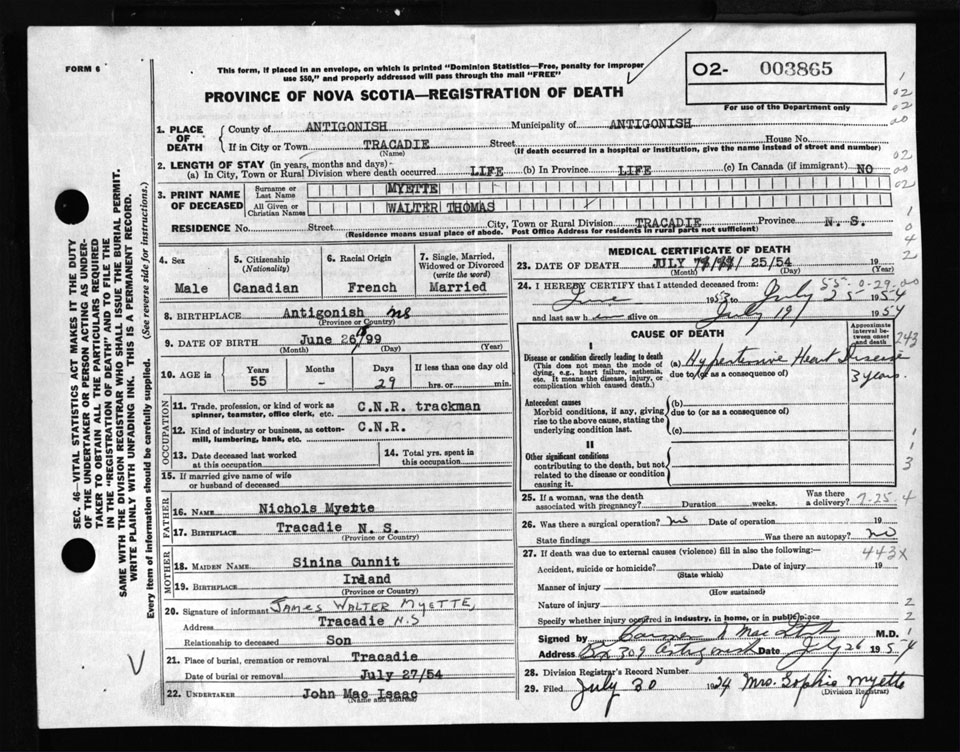 FORM 6
This form, if placed in an envelope, on which is printed "Dominion Statistics—Free, penalty for improper
use $50," and properly addressed will pass through the mail "FREE"
O2- 003865
For use of the Department only
PROVINCE OF NOVA SCOTIA—REGISTRATION OF DEATH
1. PLACE OF DEATH
County of ANTIGONISH Municipality of ANTIGONISH
If in City or Town TRACADIE Street House No.
(Name) (If death occurred in a hospital or institution, give the name instead of street and number)
2. LENGTH OF STAY (in years, months and days)-
(a) In City, Town or Rural Division where death occurred LIFE (b) In Province LIFE (c) In Canada (if immigrant) NO
3. PRINT NAME OF DECEASED
Surname or Last Name MYETTE
All Given or Christian Names WALTER THOMAS
RESIDENCE No. Street City, Town or Rural Division TRACADIE Province N. S.
(Residence means usual place of abode. Post Office Address for residents in rural parts not sufficient)
4. Sex
Male
5. Citizenship
(Nationality)
Canadian
6. Racial Origin
French
7. Single, Married,
Widowed or Divorced
(write the word)
Married
8. BIRTHPLACE Antigonish NS
(Province or Country)
9. DATE OF BIRTH June 26 99
(Month) (Day) (Year)
10. AGE in
Years Months Days If less than one day old
55 - 29 hrs. or min.
OCCUPATION
11. Trade, profession, or kind of work as
spinner, teamster, office clerk, etc. C.N.R. trackman
12. Kind of industry or business, as cotton-
mill, lumbering, bank, etc. C.N.R.
13. Date deceased last worked
at this occupation
14. Total yrs. spent in
this occupation
15. If married give name of wife
or husband of deceased
FATHER
16. NAME Nichols Myette
17. BIRTHPLACE Tracadie N. S.
(Province or Country)
MOTHER
18. MAIDEN NAME Sinina Cunnit
19. BIRTHPLACE Irland
(Province or Country)
20. Signature of informant JAMES WALTER MYETTE,
Address Tracadie N.S
Relationship to deceased Son
21. Place of burial, cremation or removal Tracadie
Date of burial or removal July 27/54
22. UNDERTAKER John Mac Isaac
(Name and Address)
MEDICAL CERTIFICATE OF DEATH
23. DATE OF DEATH JULY 25/54 19
(Month) (Day) (Year)
24. I HEREBY CERTIFY that I attended deceased from: 55-0-29-00
June 1953 to July 25 1954
and last saw h im alive on July 19 1954
CAUSE OF DEATH
Approximate
interval be-
tween onset
and death
I
Disease or condition directly leading to death
(This does not mean the mode of
dying, e.g., heart failure, asthenia,
etc. It means the disease, injury, or
complication which caused death.)
(a) Hypertensive Heart Disease
due to (or as a consequence of) 3 years.
Antecedent causes
Morbid conditions, if any, giving
rise to the above cause, stating the
underlying condition last.
(b)
due to (or as a consequence of)
(c)
II
Other significant conditions
contributing to the death, but not
related to the disease or condition
causing it.
25. If a woman, was the death
associated with pregnancy? Duration weeks. Was there
a delivery? 7-25-4
26. Was there a surgical operation? no Date of operation 19
State findings Was there an autopsy? no
27. If death was due to external causes (violence) fill in also the following:— 443X
Accident, suicide or homicide? Date of injury 19
(State which)
Manner of injury
(How sustained)
Nature of injury
Specify whether injury occurred in industry, in home, or in public place
Signed by M.D.
Address Box 309 Antigonish Date July 26 1954
28. Division Registrar's Record Number
29. Filed July 30 Mrs. Sophie Myette
(Division Registrar)
SEC. 46—VITAL STATISTICS ACT MAKES IT THE DUTY
OF THE UNDERTAKER OR PERSON ACTING AS UNDER-
TAKER TO OBTAIN ALL THE PARTICULARS REQUIRED
IN THE "REGISTRATION OF DEATH" AND TO FILE THE
SAME WITH THE DIVISION REGISTRAR WHO SHALL ISSUE THE BURIAL PERMIT.
WRITE PLAINLY WITH UNFADING INK. THIS IS A PERMANENT RECORD.
Every item of information should be carefully supplied. (See reverse side for instructions.)
1
02
02
00
02
00
02
1
0
4
2
243
1
1
3
2
2
1
4